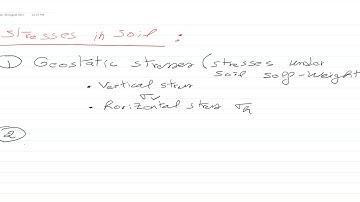 Stresses in Soil :
① Geostatic stresses (stresses under
soil self-weight
• Vertical stress
σv
• Horizontal stress σh
②